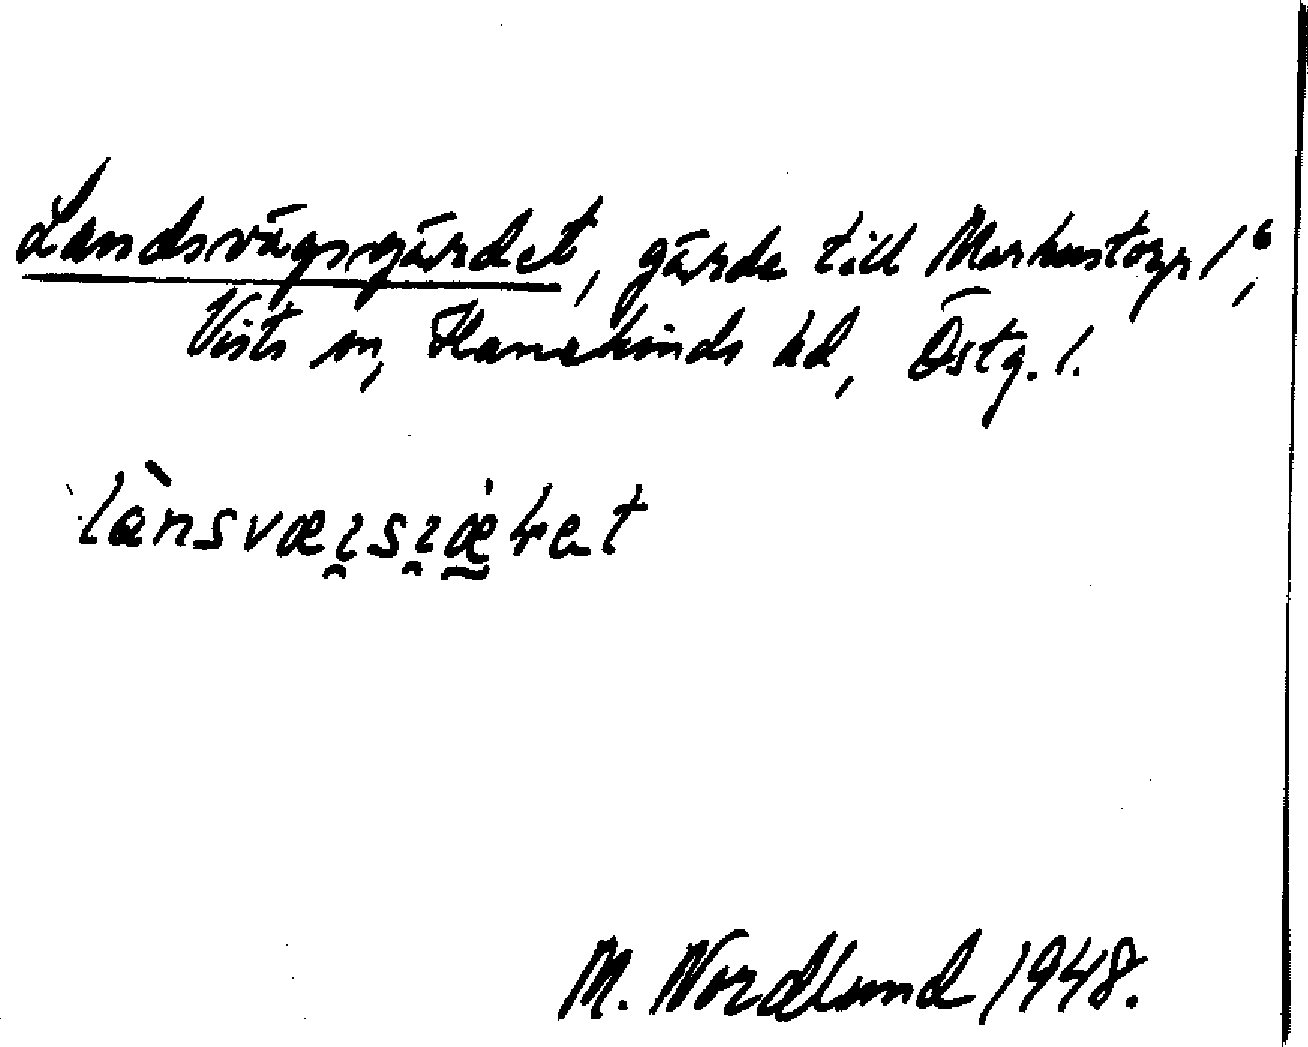 Landsvägsgärdet, gärde till Markustorp 1⁶,
Vists sn, Hanekinds hd, Östg. l.
lànsvæɪsɪæ̀ret
M. Nordlund 1948.